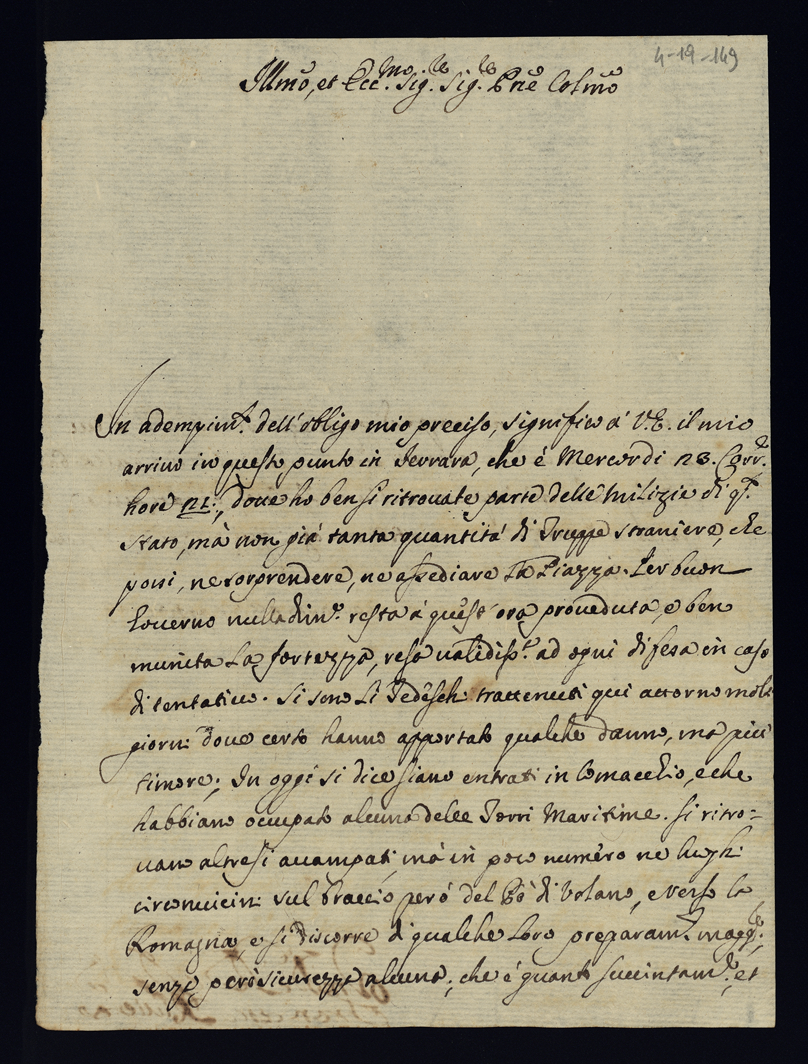 4-19-149
Illmo, et Ecc.mo Sig.re Sig.re Prie Colmo
In adempim.to dell'obligo mio preciso, significo à V.E. il mio
arrivo in questo punto in Ferrara, che è Mercordi 23. Corr.te
hore 21:, doue ho bensi ritrouate parte delle Milizie di q.to
stato, mà non già tanta quantità di Truppe straniere, che
possi, ne sorprendere, ne assediare la Piazza. Per buon
Gouerno nulladim.o resta à quest'ora proueduta, e ben
munita la fortezza, resa validiss.a ad ogni difesa in caso
di tentatiuo. Si sono li Tedeschi trattenuti qui attorno molti
giorni doue certo hanno apportato qualche danno, mà più
timore; In oggi si dice siano entrati in Comacchio, e che
habbiano occupato alcune delle Torri Maritime. Si ritro=
uano altresi accampati, mà in poco numero ne luoghi
circonuicini sul braccio però del Pò di Volano, e verso la
Romagna, e si discorre di qualche loro preparam.to magg.re,
senza però sicurezza alcuna; che è quanto succintam.te, et